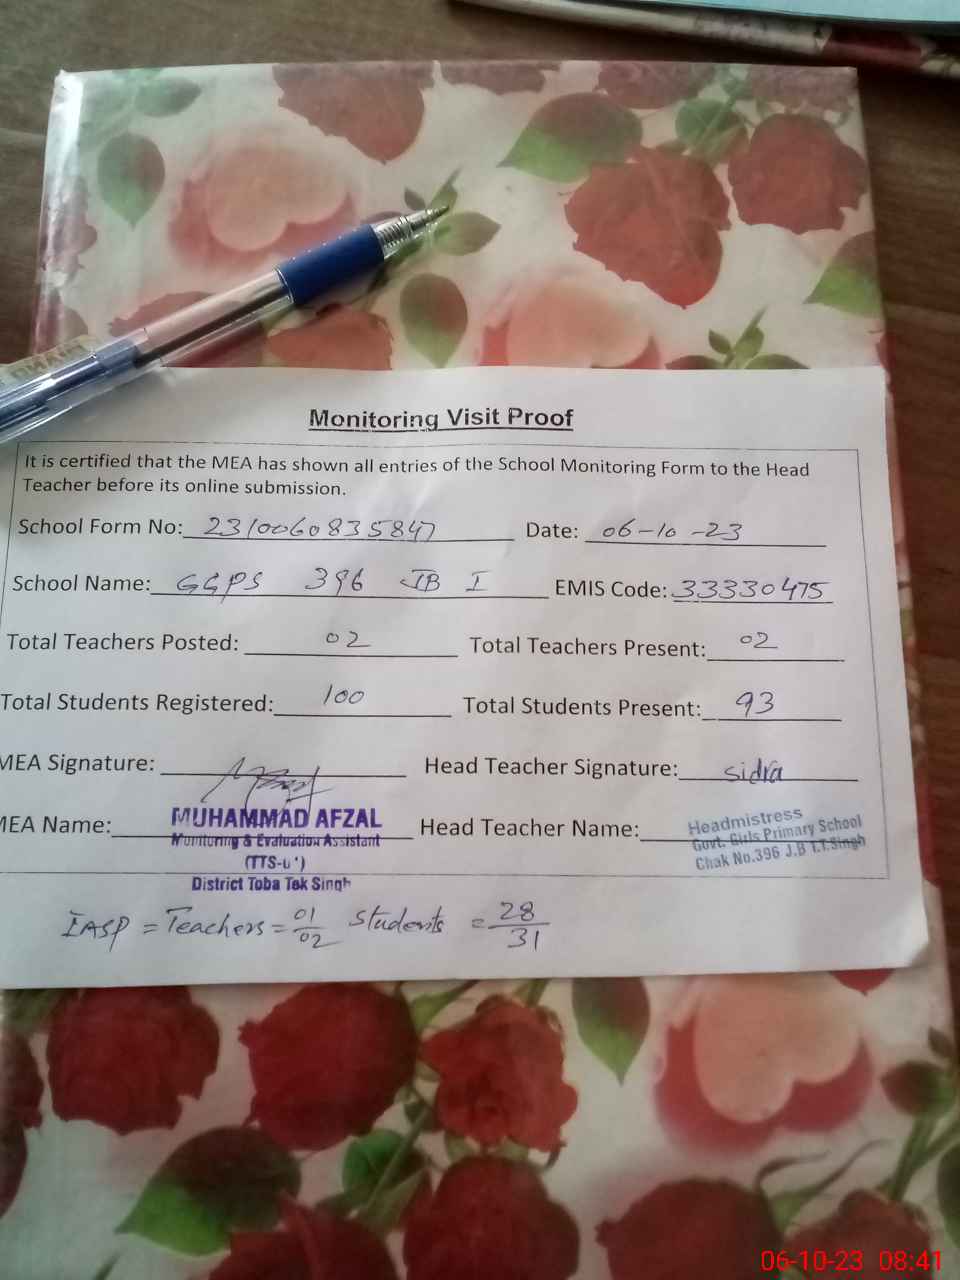 Monitoring Visit Proof
It is certified that the MEA has shown all entries of the School Monitoring Form to the Head
Teacher before its online submission.
School Form No: 2310060835847 Date: 06-10-23
School Name: GGPS 396 JB I EMIS Code: 33330475
Total Teachers Posted: 02 Total Teachers Present: 02
Total Students Registered: 100 Total Students Present: 93
MEA Signature: Head Teacher Signature: sidra
MEA Name: MUHAMMAD AFZAL Head Teacher Name: Headmistress
Monitoring & Evaluation Assistant Govt. Girls Primary School
(TTS- Chak No.396 J.B T.T.Singh
District Toba Tek Singh
IASP = Teachers = 01/02 Students = 28/31
06-10-23 08:41